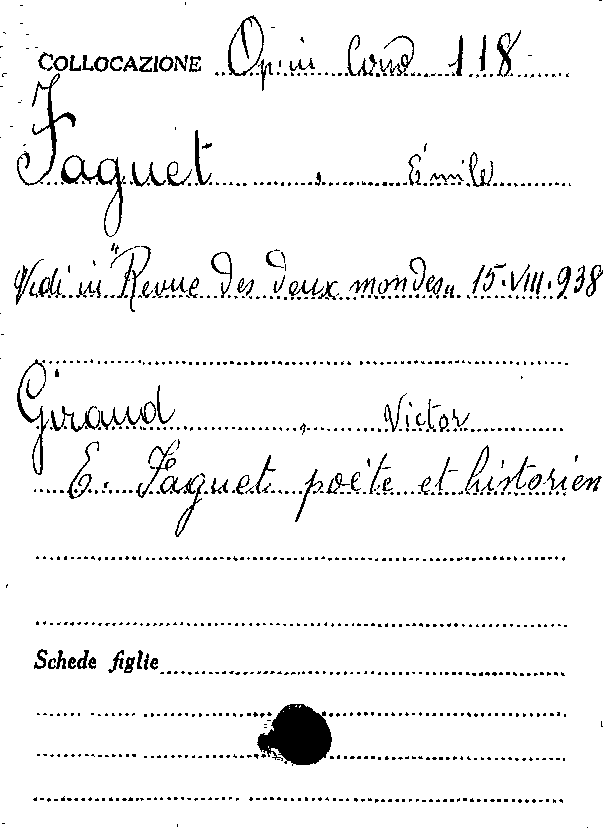 COLLOCAZIONE Op. in Cons 118
Faguet, Émile
Vedi in "Revue des deux mondes" 15.VIII.938
Giraud, Victor
E. Faguet poéte et historien
Schede figlie